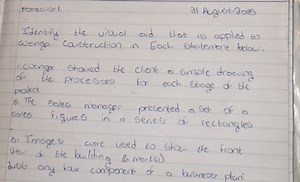 Homework 21 August 2025
Identify the visual aid that is applied to
wonga Construction in Each statement below.
1. wonga showed the client a simple drawing
of the processes for each stage of the
project
2. The sales manager presented a set of
sales figures in a series of rectangles
3. Images were used to show the front
of the building (2 marks)
any four component of a business plan